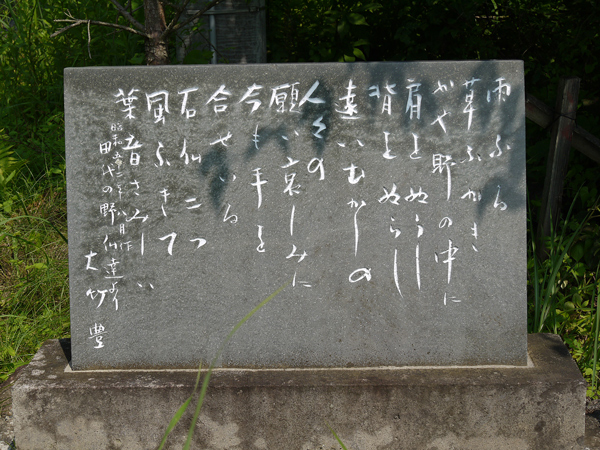 雨ふる
草ふかき
かや野の中に
肩をぬらし
背をぬらし
遠いむかしの
人々の
願い哀しみに
今も手を
合せいる
石仏二つ
風ふきて
葉音さみしい
昭和五十二年八月作
田代の野仏達より
大竹豊